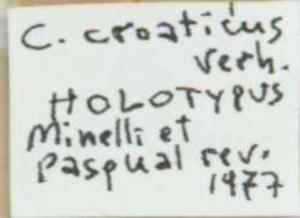 C. croaticus
verh.
HOLOTYPUS
Minelli et
Pasqual rev.
1977